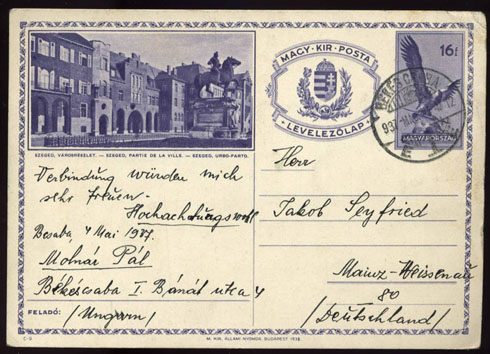 MAGY · KIR · POSTA
LEVELEZŐLAP
16 f
MAGYARORSZÁG
SZEGED, VÁROSRÉSZLET. — SZEGED, PARTIE DE LA VILLE. — SZEGED, URBO-PARTO.
Verbindung würden mich
sehr freuen
Hochachtungsvoll
Bcsaba 4 Mai 1937.
Molnár Pál
Békéscsaba I. Bánát utca 4
FELADÓ: /Ungarn/
Herr
Jakob Seyfried
Mainz-Weissenau
80
/Deutschland/
M. KIR. ÁLLAMI NYOMDA, BUDAPEST 1936.